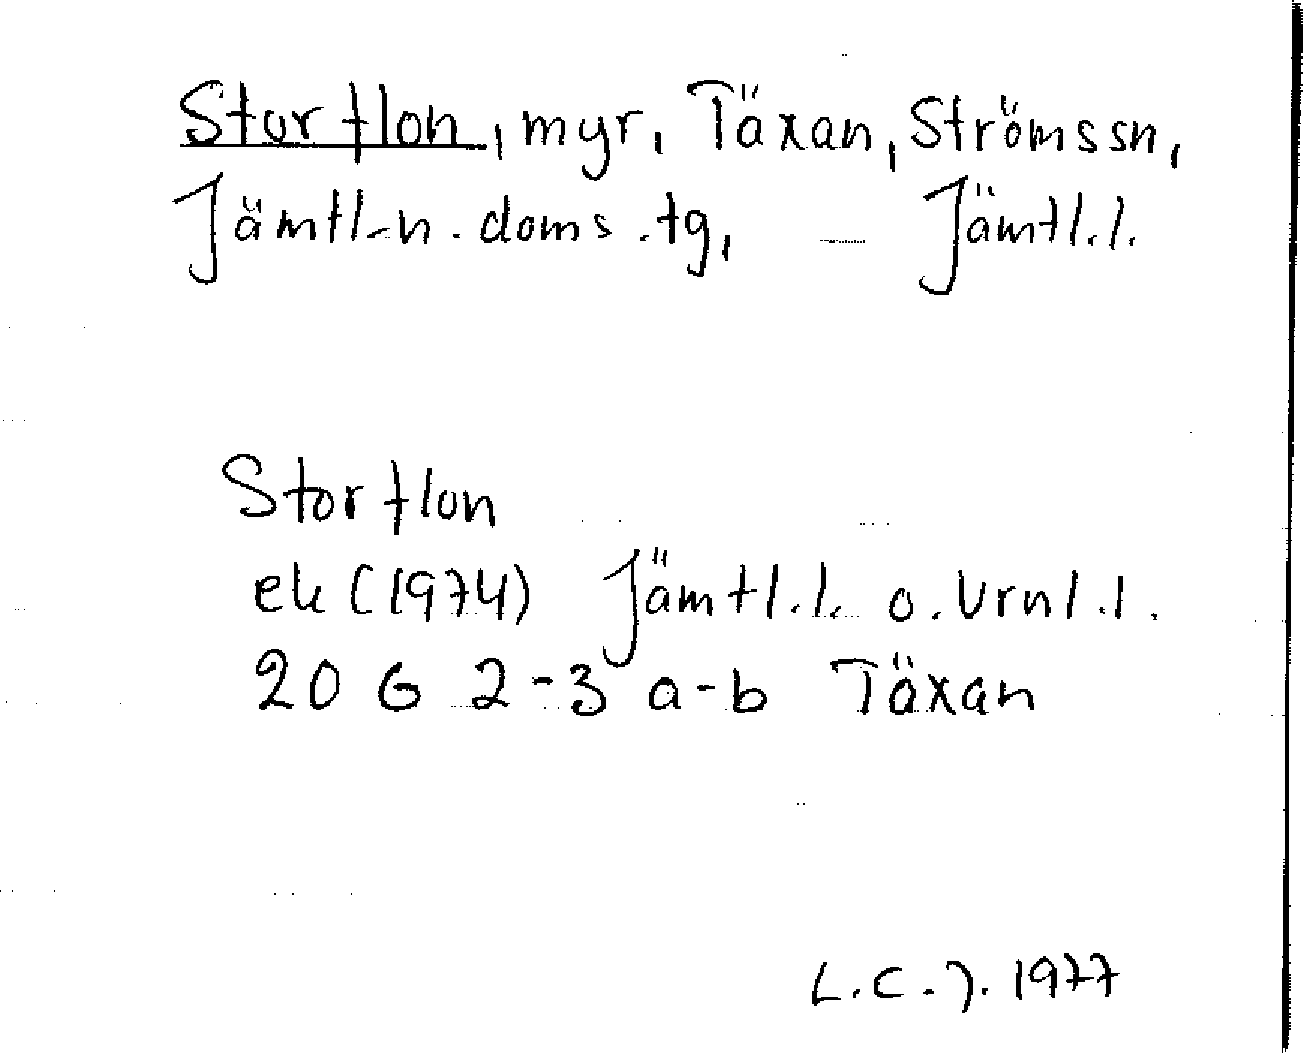 Storflon, myr, Täxan, Strömssn,
Jämtl-n. doms.tg, – Jämtl.l.
Storflon
ek (1974) Jämtl.l. o. Vrnl.l.
20 G 2-3 a-b Täxan
L.C.J. 1977